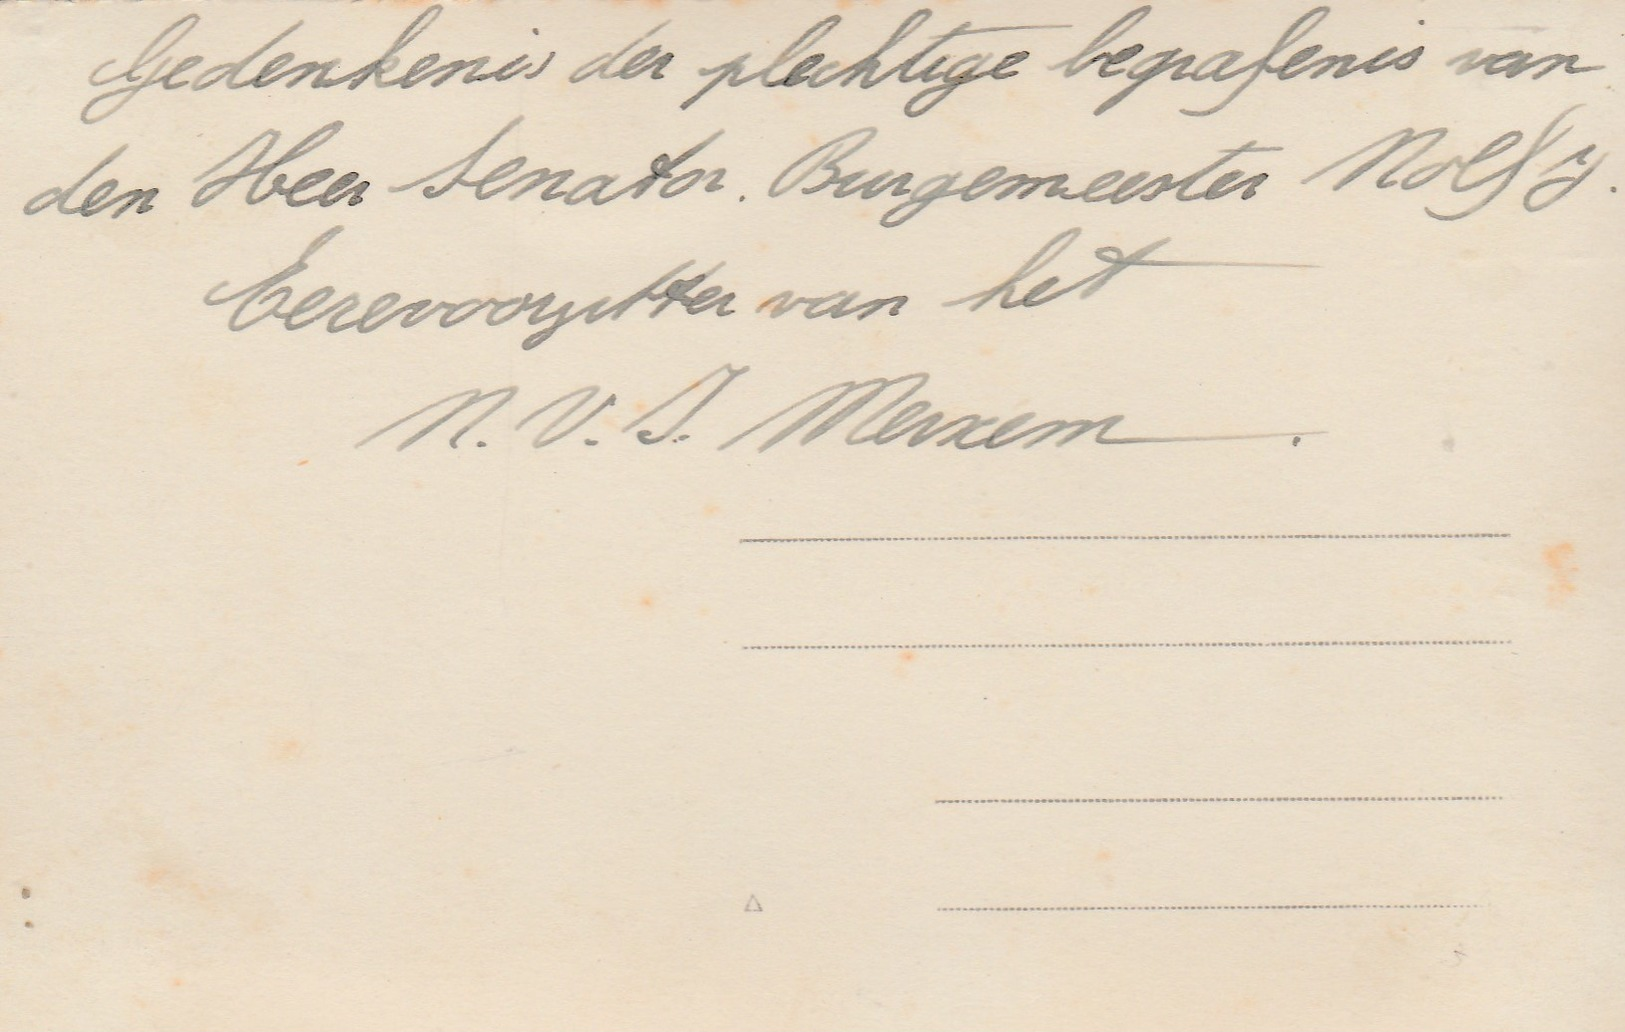 Gedenkenis der plechtige begrafenis van
den Heer Senator. Burgemeester Nolf
Eerevoorzitter van het
N.V.I. Merxem.